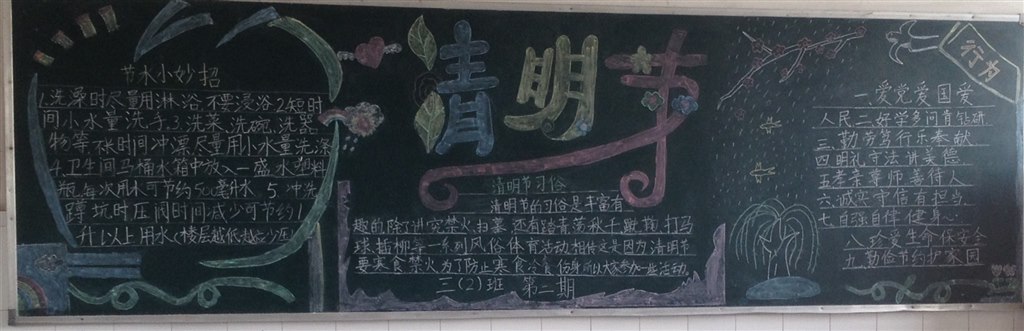 节水小妙招
1.洗澡时尽量用淋浴,不要浸浴 2.短时
间小水量洗手,3.洗菜、洗碗、洗器
物等不长时间冲漂尽量用小水量先涤
4.卫生间马桶水箱中放入一盛水塑料
瓶,每次用水可节约50毫升水 5.冲洗
蹲坑时压阀时间减少可节约1
升以上用水(楼层越低越应少压)
清明节
清明节习俗
清明节的习俗是丰富有
趣的,除了讲究禁火、扫墓,还有踏青、荡秋千、蹴鞠、打马
球、插柳等一系列风俗体育活动,相传这是因为清明节
要寒食禁火,为了防止寒食冷食伤身,所以大家参加一些活动
三(2)班 第二期
行为
一.爱党爱国爱
人民二.好学多问肯钻研
三.勤劳笃行乐奉献
四.明礼守法讲美德
五.孝亲尊师善待人
六.诚实守信有担当
七.自强自律健身心
八.珍爱生命保安全
九.勤俭节约护家园